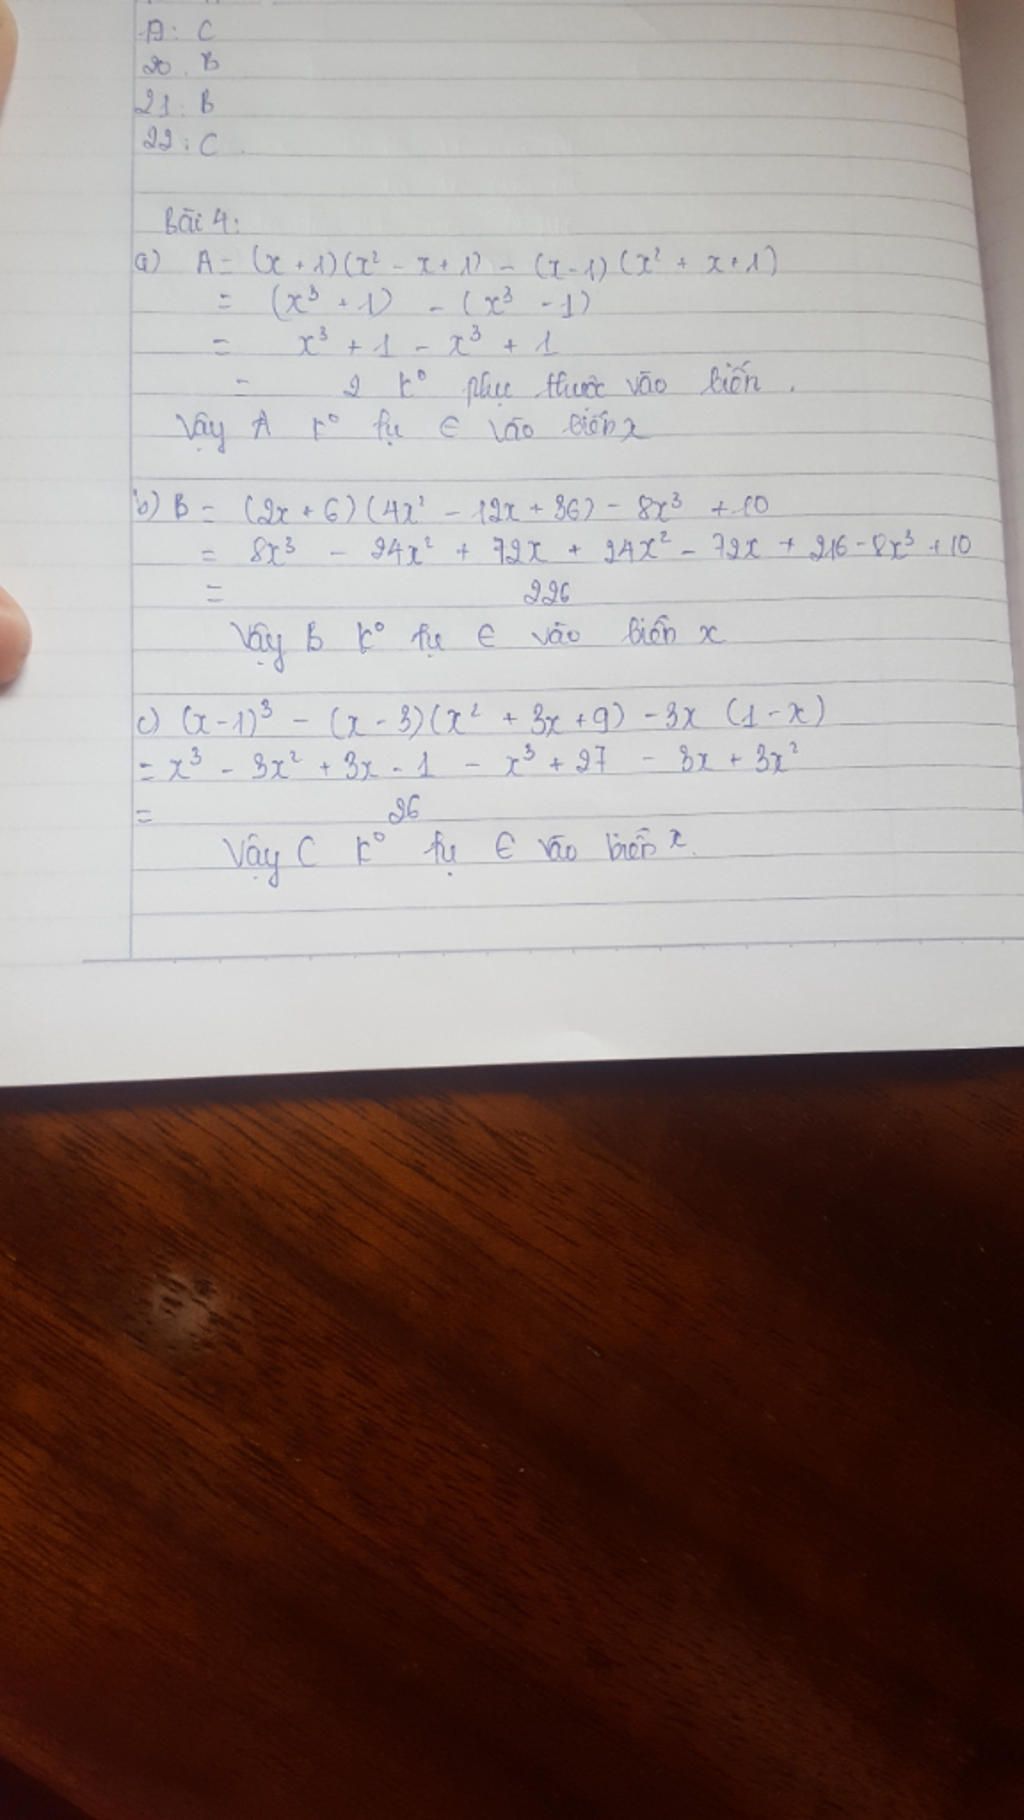 19: C
20. B
21: B
22: C
Bài 4:
a) A = (x + 1)(x² - x + 1) - (x - 1)(x² + x + 1)
= (x³ + 1) - (x³ - 1)
= x³ + 1 - x³ + 1
= 2 k° phụ thuộc vào biến.
Vậy A k° fụ ∈ vào biến x
b) B = (2x + 6)(4x² - 12x + 36) - 8x³ + 10
= 8x³ - 24x² + 72x + 24x² - 72x + 216 - 8x³ + 10
= 226
Vậy B k° fụ ∈ vào biến x
c) (x - 1)³ - (x - 3)(x² + 3x + 9) - 3x (1 - x)
= x³ - 3x² + 3x - 1 - x³ + 27 - 3x + 3x²
= 26
Vậy C k° fụ ∈ vào biến x.